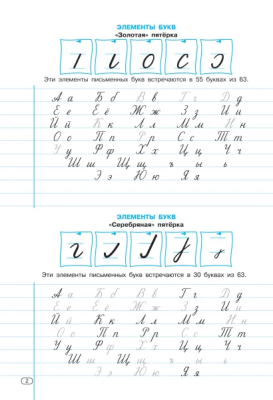 ЭЛЕМЕНТЫ БУКВ
«Золотая» пятёрка
Эти элементы письменных букв встречаются в 55 буквах из 63.
А а Б б В в Г г Д д
Е е Ё ё Ж ж З з И и
Й й К к Л л М м Н н
О о П п Р р С с Т т
У у Ф ф Х х Ц ц Ч ч
Ш ш Щ щ ъ ы ь
Э э Ю ю Я я
ЭЛЕМЕНТЫ БУКВ
«Серебряная» пятёрка
Эти элементы письменных букв встречаются в 30 буквах из 63.
А а Б б В в Г г Д д
Е е Ё ё Ж ж З з И и
Й й К к Л л М м Н н
О о П п Р р С с Т т
У у Ф ф Х х Ц ц Ч ч
Ш ш Щ щ ъ ы ь
Э э Ю ю Я я
2